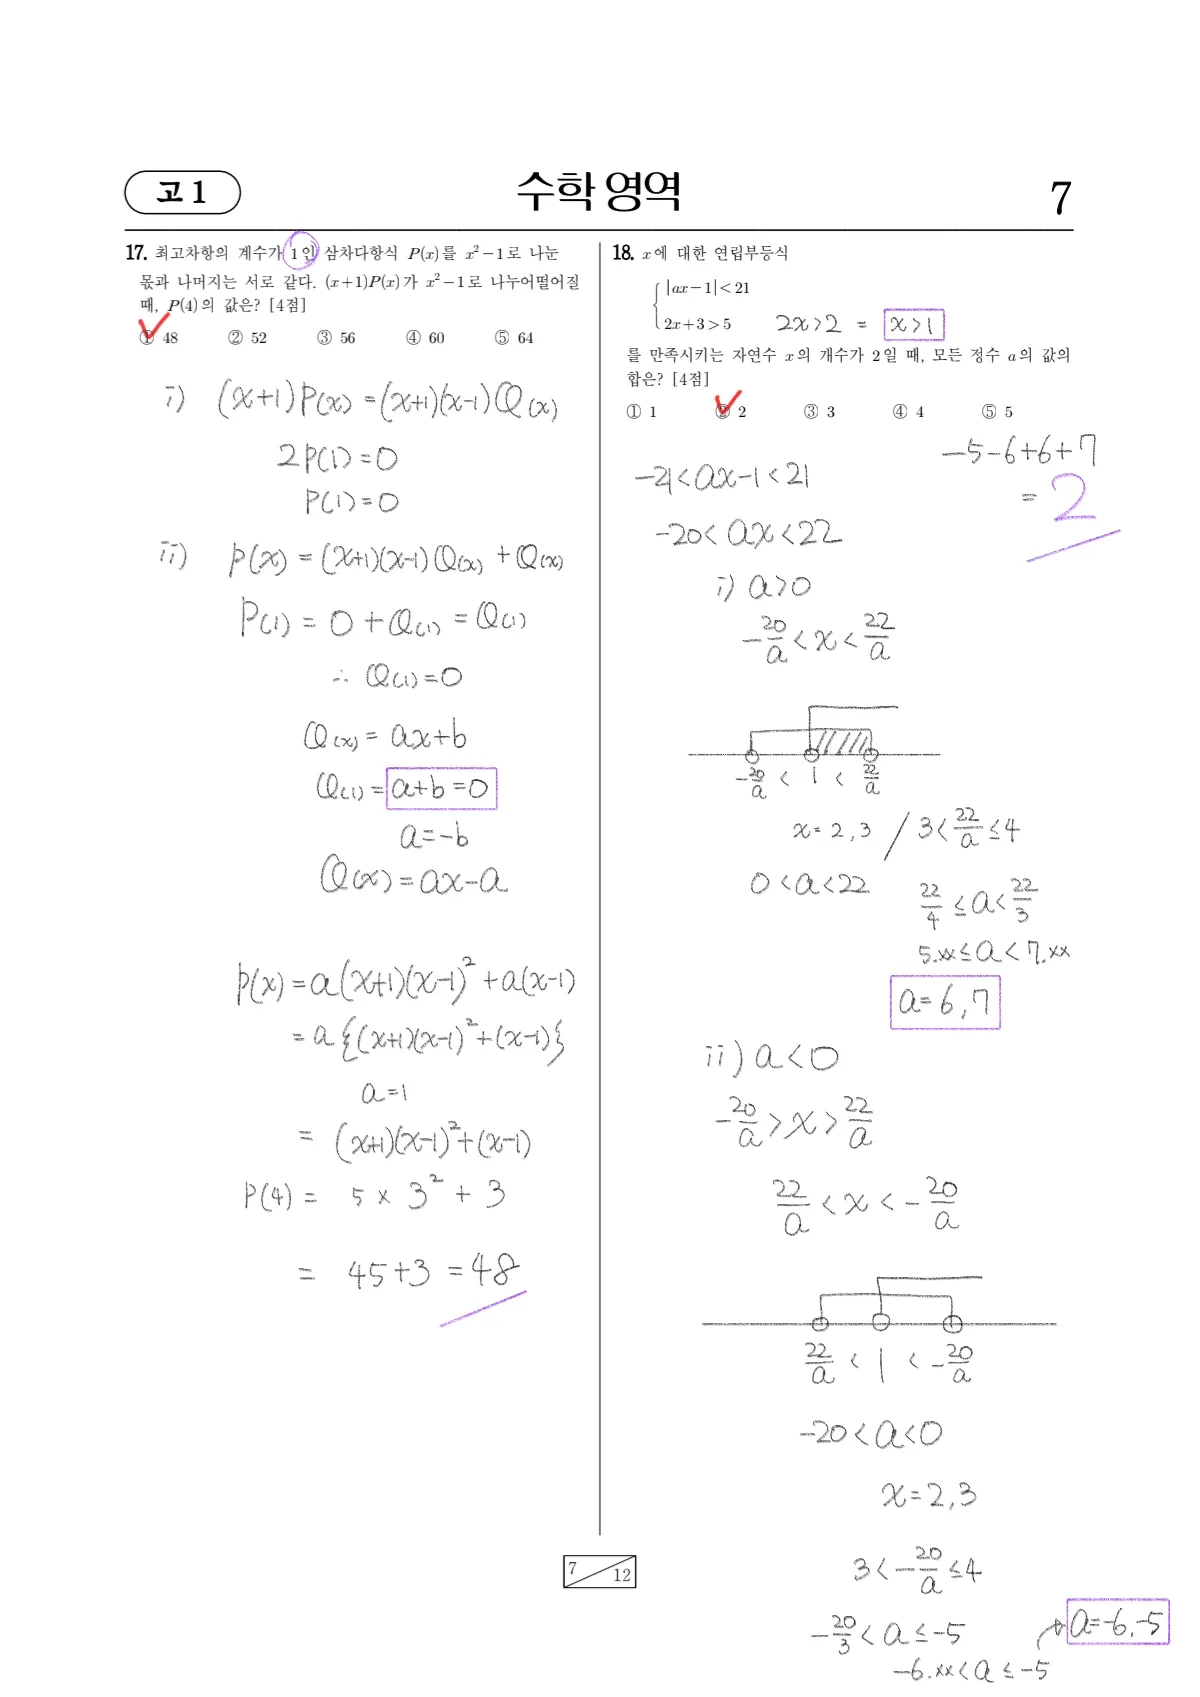 고 1
수학 영역
7
17. 최고차항의 계수가 1인 삼차다항식 P(x)를 x²-1로 나눈
몫과 나머지는 서로 같다. (x+1)P(x)가 x²-1로 나누어떨어질
때, P(4)의 값은? [4점]
① 48 ② 52 ③ 56 ④ 60 ⑤ 64
i) (x+1)P(x) = (x+1)(x-1)Q(x)
2P(1) = 0
P(1) = 0
ii) P(x) = (x+1)(x-1)Q(x) + Q(x)
P(1) = 0 + Q(1) = Q(1)
∴ Q(1) = 0
Q(x) = ax+b
Q(1) = a+b = 0
a = -b
Q(x) = ax-a
P(x) = a(x+1)(x-1)² + a(x-1)
= a{(x+1)(x-1)² + (x-1)}
a = 1
= (x+1)(x-1)² + (x-1)
P(4) = 5 × 3² + 3
= 45+3 = 48
18. x에 대한 연립부등식
|ax-1| < 21
2x+3 > 5 2x>2 = x>1
를 만족시키는 자연수 x의 개수가 2일 때, 모든 정수 a의 값의
합은? [4점]
① 1 ② 2 ③ 3 ④ 4 ⑤ 5
-5-6+6+7
= 2
-21 < ax-1 < 21
-20 < ax < 22
i) a>0
-20/a < x < 22/a
-20/a < 1 < 22/a
x = 2, 3 / 3 < 22/a ≤ 4
0 < a < 22
22/4 ≤ a < 22/3
5.xx ≤ a < 7.xx
a = 6, 7
ii) a<0
-20/a > x > 22/a
22/a < x < -20/a
22/a < 1 < -20/a
-20 < a < 0
x = 2, 3
3 < -20/a ≤ 4
-20/3 < a ≤ -5
-6.xx < a ≤ -5
a = -6, -5
7 / 12